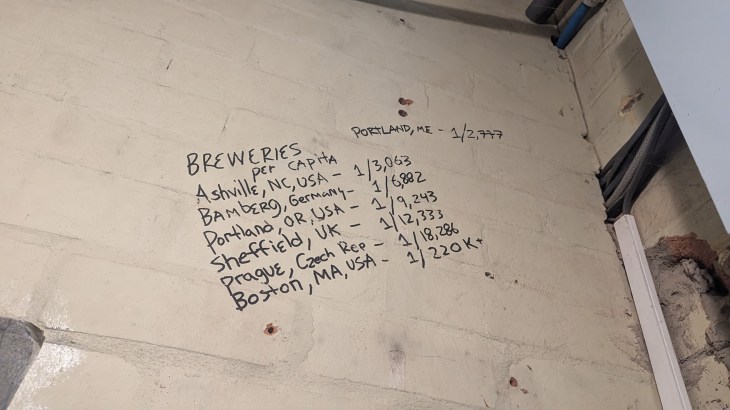 PORTLAND, ME - 1/2,777
BREWERIES
per CAPITA
Ashville, NC, USA - 1/3,063
BAMBERG, Germany - 1/6,882
Portland, OR, USA - 1/9,243
Sheffield, UK - 1/12,333
Prague, Czech Rep - 1/18,286
Boston, MA, USA - 1/220K+